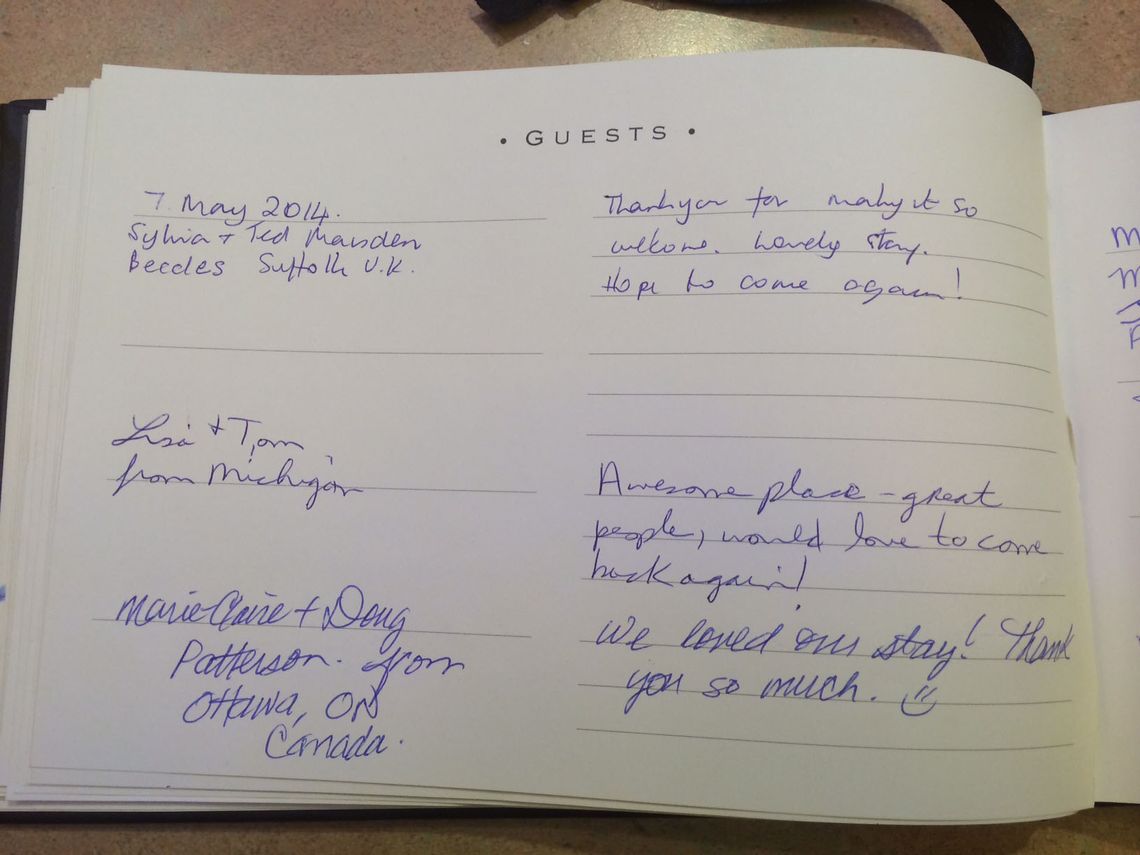 • GUESTS •
7 May 2014.
Sylvia + Ted Marsden
Beccles Suffolk U.K.
Thankyou for making it so
welcome. Lovely stay.
Hope to come again!
Lisa + Tom
from Michigan
Awesome place - great
people, would love to come
back again!
Marie-Claire + Doug
Patterson. from
Ottawa, ON
Canada.
We loved our stay! Thank
you so much. :)